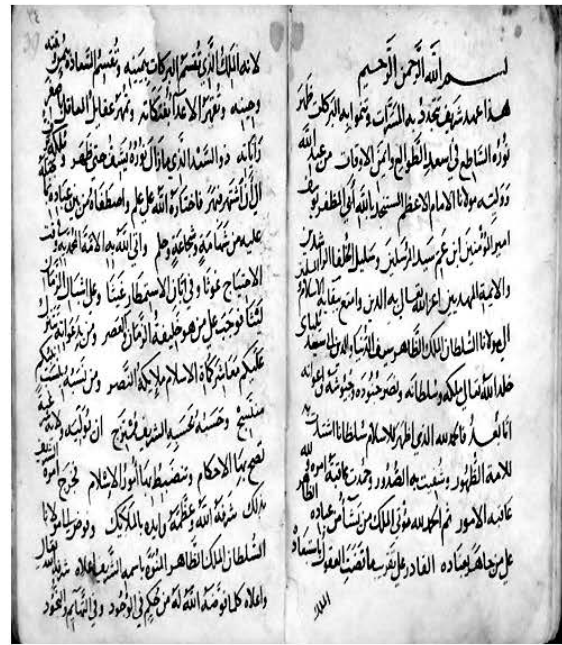 بسم الله الرحمن الرحيم
هذا عهد شريف تجدد به المسرات وتنمو به البركات ظهر
نوره الساطع في سعد الطوالع وايمن الاوقات من عبد الله
ووليه مولانا الامام الاعظم المستنجد بالله ابي المظفر يوسف
امير المؤمنين ابن عم سيد المرسلين وسليل الخلفا الراشدين
والايمة المهديين اعز الله تعالى به الدين وامتع ببقايه الاسلام
الى مولانا السلطان الملك الظاهر سيف الدنيا والدين
خلد الله تعالى ملكه وسلطانه ونصر جنوده وجيوشه واعوانه
اما بعد فالحمد لله الذي اظهر للاسلام سلطانا
للامة الظهور وشفيت به الصدور وحمدت عاقبة امره ولله
عاقبة الامور ثم الحمد لله مؤتي الملك من يشا من عباده
على من جاهد بعباده القادر على تقريب ما تقصر العقول باستبعاده
الملك
٣٤
لانه الملك الذي تقسم البركات بيمينه وتقسم السعادة بنور
وجبينه وتقهر الاعدا بفتكاته وتمهر عقايل المعاقل
راياته ذو السعد الذي ما زال نوره يشف حتى ظهر
الى ان اشتهر فبهر فاختاره الله على علم واصطفاه من بين عباده
عليه من شهامة وشجاعة وحلم واتى الله به الامة المحمدية في وقت
الاحتياج غوثا وفي ابان الاستمطار غيثا وعلى اشبال
ليثا فوجب على من هو خليفة الزمان والعصر ومن بدعواته
عليكم معاشر كماة الاسلام ملايكة النصر ومن نسبه
منتسج وحسبه بحسبه الشريف ممتزج ان توليه ولاية
تصح بها الاحكام وتنضبط بها امور الاسلام فخرج امره الشريف
بذلك شرفه الله وعظمه وايده بالملايك وفوض لمولانا
السلطان الملك الظاهر المنوه باسمه الشريف اعلاه شرفه الله تعالى
واعلاه كل ما فوضه الله له من حكم في الوجود وفي التهايم والنجود